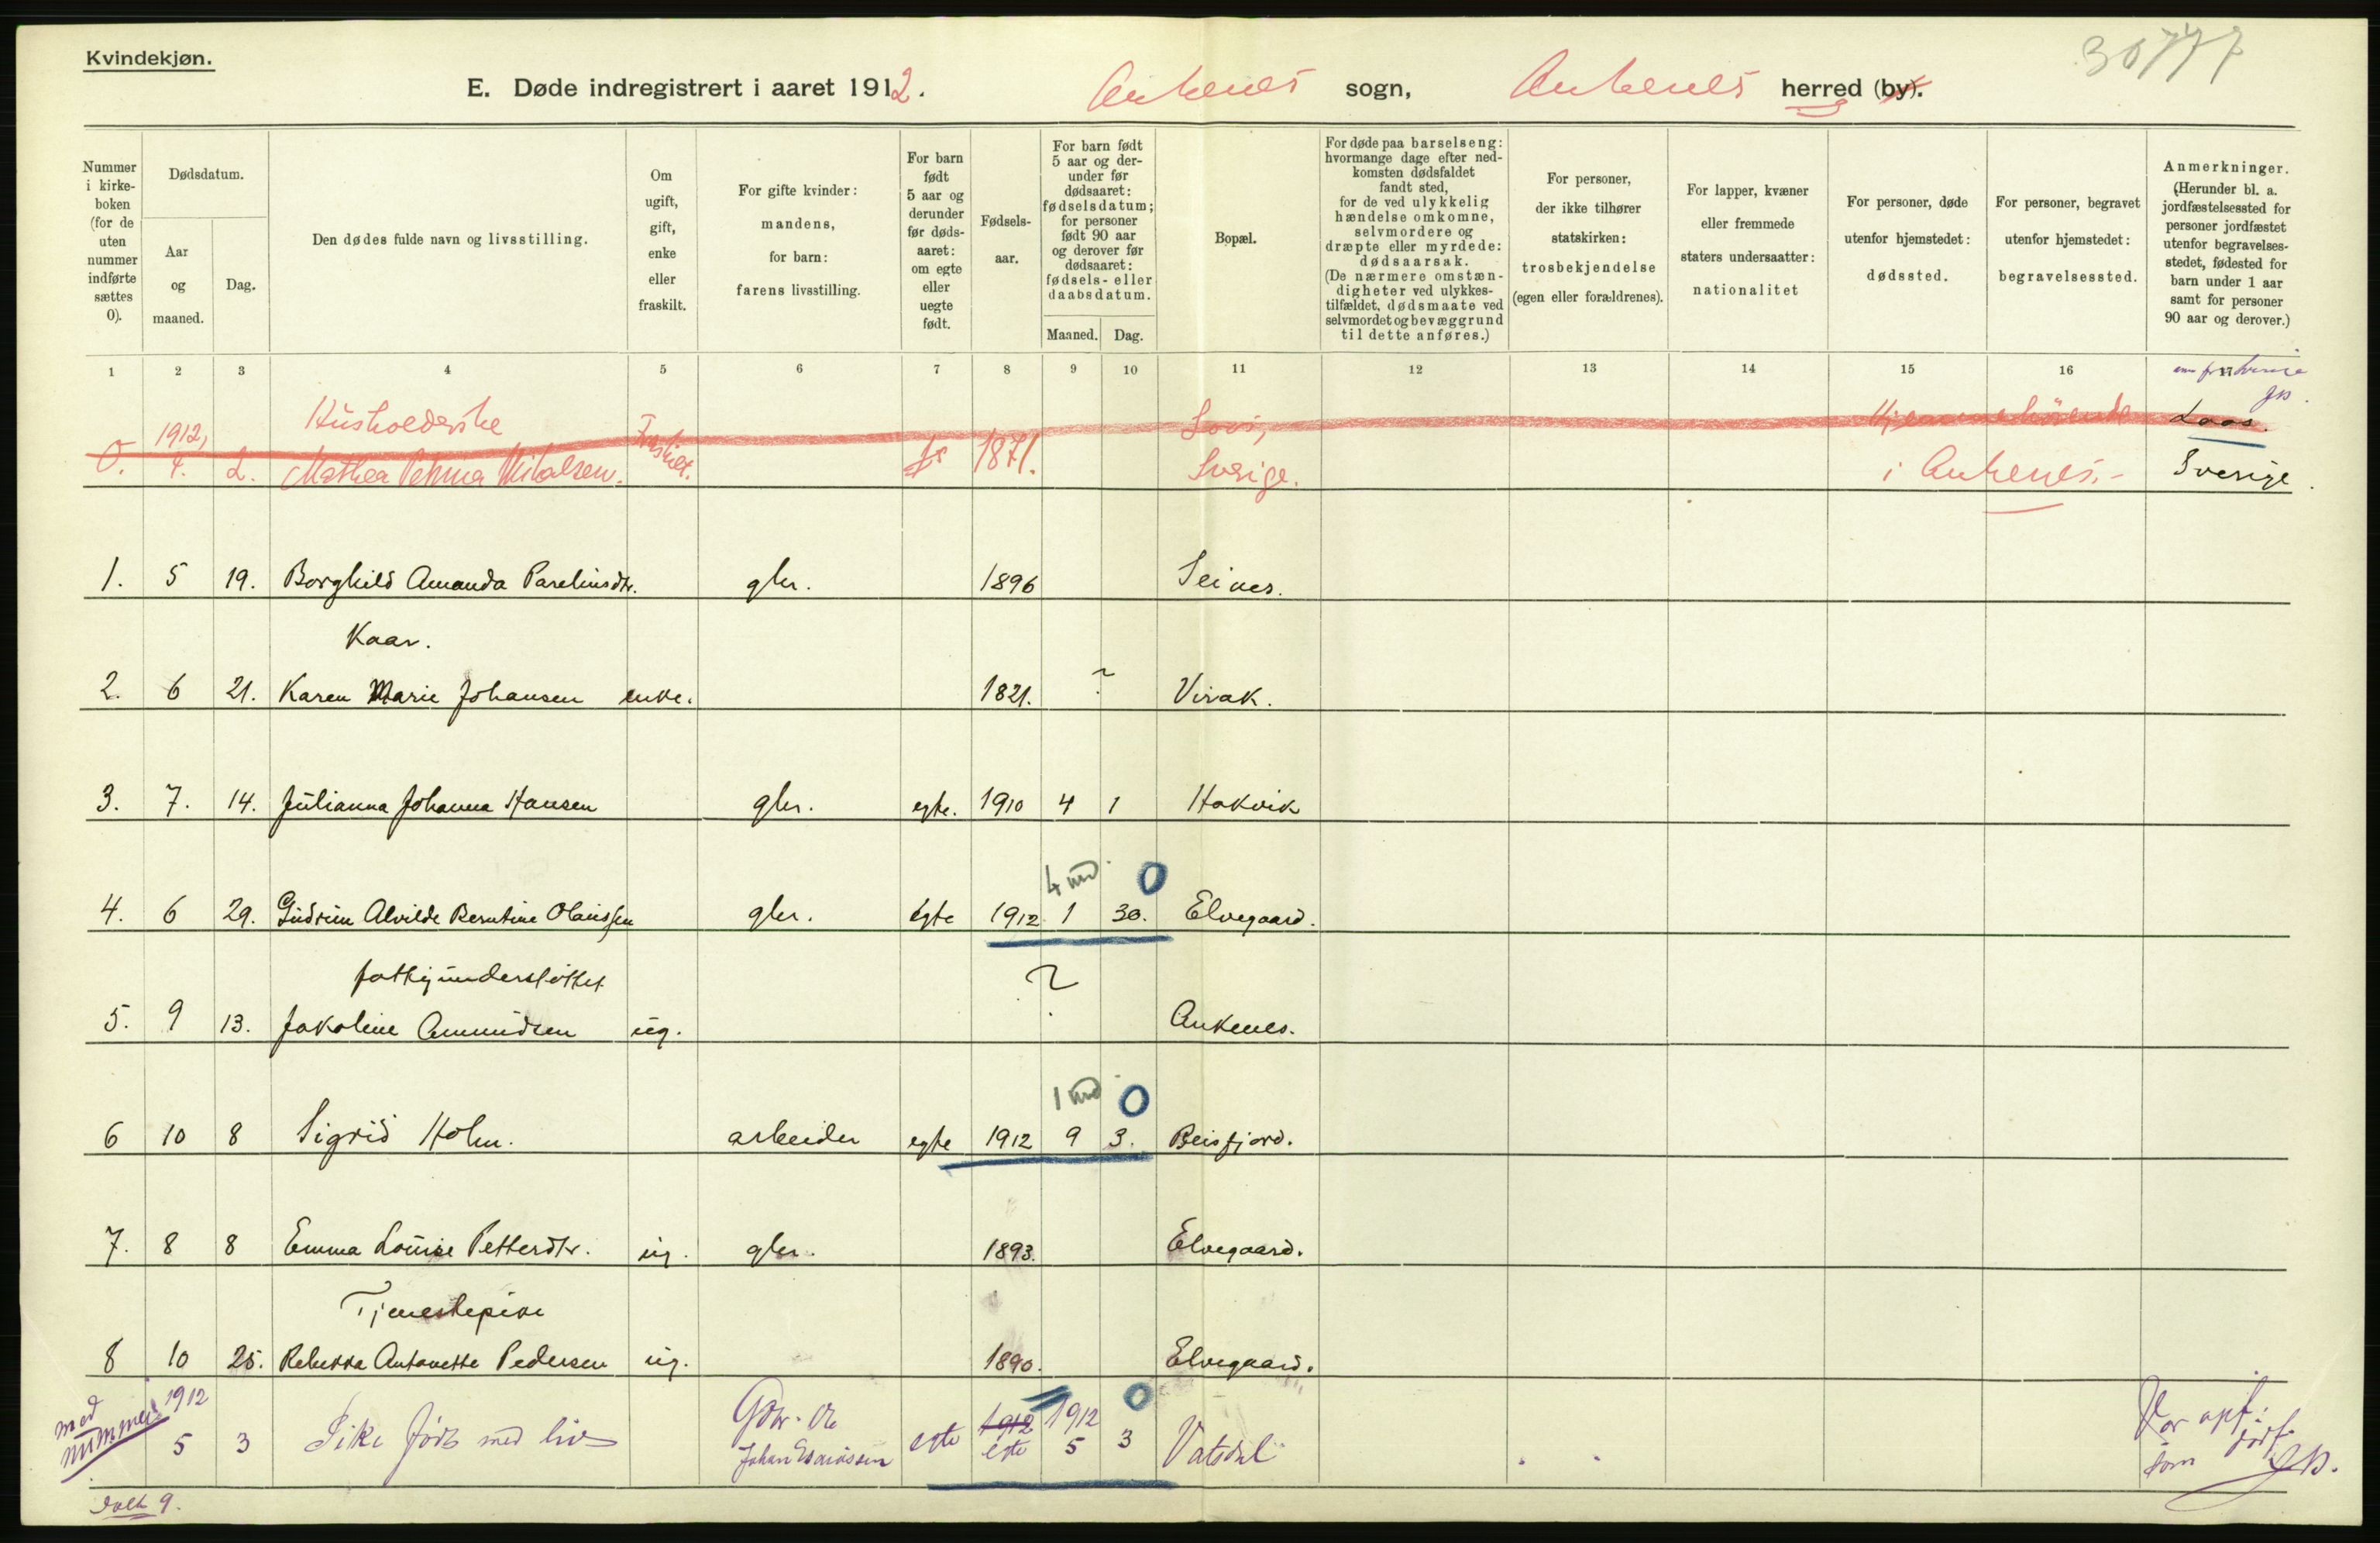 Kvindekjøn.
E. Døde indregistrert i aaret 1912. Ankenes sogn, Ankenes herred (by).
30777
Nummer i kirke-boken (for de uten nummer indførte sættes 0).
Dødsdatum.
Aar og maaned.
Dag.
Den dødes fulde navn og livsstilling.
Om ugift, gift, enke eller fraskilt.
For gifte kvinder: mandens, for barn: farens livsstilling.
For barn født 5 aar og derunder før døds-aaret: om egte eller uegte født.
Fødsels-aar.
For barn født 5 aar og der-under før dødsaaret: fødselsdatum; for personer født 90 aar og derover før dødsaaret: fødsels- eller daabsdatum.
Maaned. Dag.
Bopæl.
For døde paa barselseng: hvormange dage efter ned-komsten dødsfaldet fandt sted, for de ved ulykkelig hændelse omkomne, selvmordere og dræpte eller myrdede: dødsaarsak. (De nærmere omstæn-digheter ved ulykkes-tilfældet, dødsmaate ved selvmordet og bevæggrund til dette anføres.)
For personer, der ikke tilhører statskirken: trosbekjendelse (egen eller forældrenes).
For lapper, kvæner eller fremmede staters undersaatter: nationalitet
For personer, døde utenfor hjemstedet: dødssted.
For personer, begravet utenfor hjemstedet: begravelsessted.
Anmerkninger. (Herunder bl. a. jordfæstelsessted for personer jordfæstet utenfor begravelses-stedet, fødested for barn under 1 aar samt for personer 90 aar og derover.)
1 2 3 4 5 6 7 8 9 10 11 12 13 14 15 16 17
1912, Husholderske Hjemmehörende
0. 4. 2. Mathea Petrina Nikolsen. Fraskilt. 1871. Sverige. i Ankenes.- Sverige.
1. 5 19. Borghild Amanda Parelinsdtr. gbr. 1896 Seines.
Kaar.
2. 6 21. Karen Marie Johansen enke. 1821. ? Virak.
3. 7. 14. Julianna Johanna Hansen gbr. egte. 1910 4 1 Hakvik
4 md 0
4. 6 29. Gudrun Alvilde Berntine Olaussen gbr. egte 1912 1 30. Elvegaard.
fattigunderstöttet ?
5. 9 13. Jakoline Amundsen ug. Ankenes.
1 md 0
6 10 8 Sigrid Holm. arbeider egte 1912 9 3. Beisfjord.
7. 8 8 Emma Louise Pettersdtr. ug. gbr. 1893. Elvegaard.
Tjenestepike
8 10 25. Rebekka Antonette Pedersen ug. 1890. Elvegaard.
med 1912 0
nummer 5 3 Pike født med liv Johan egte 1912 egte 1912 5 3 Vatsdal Var opf. som
9.